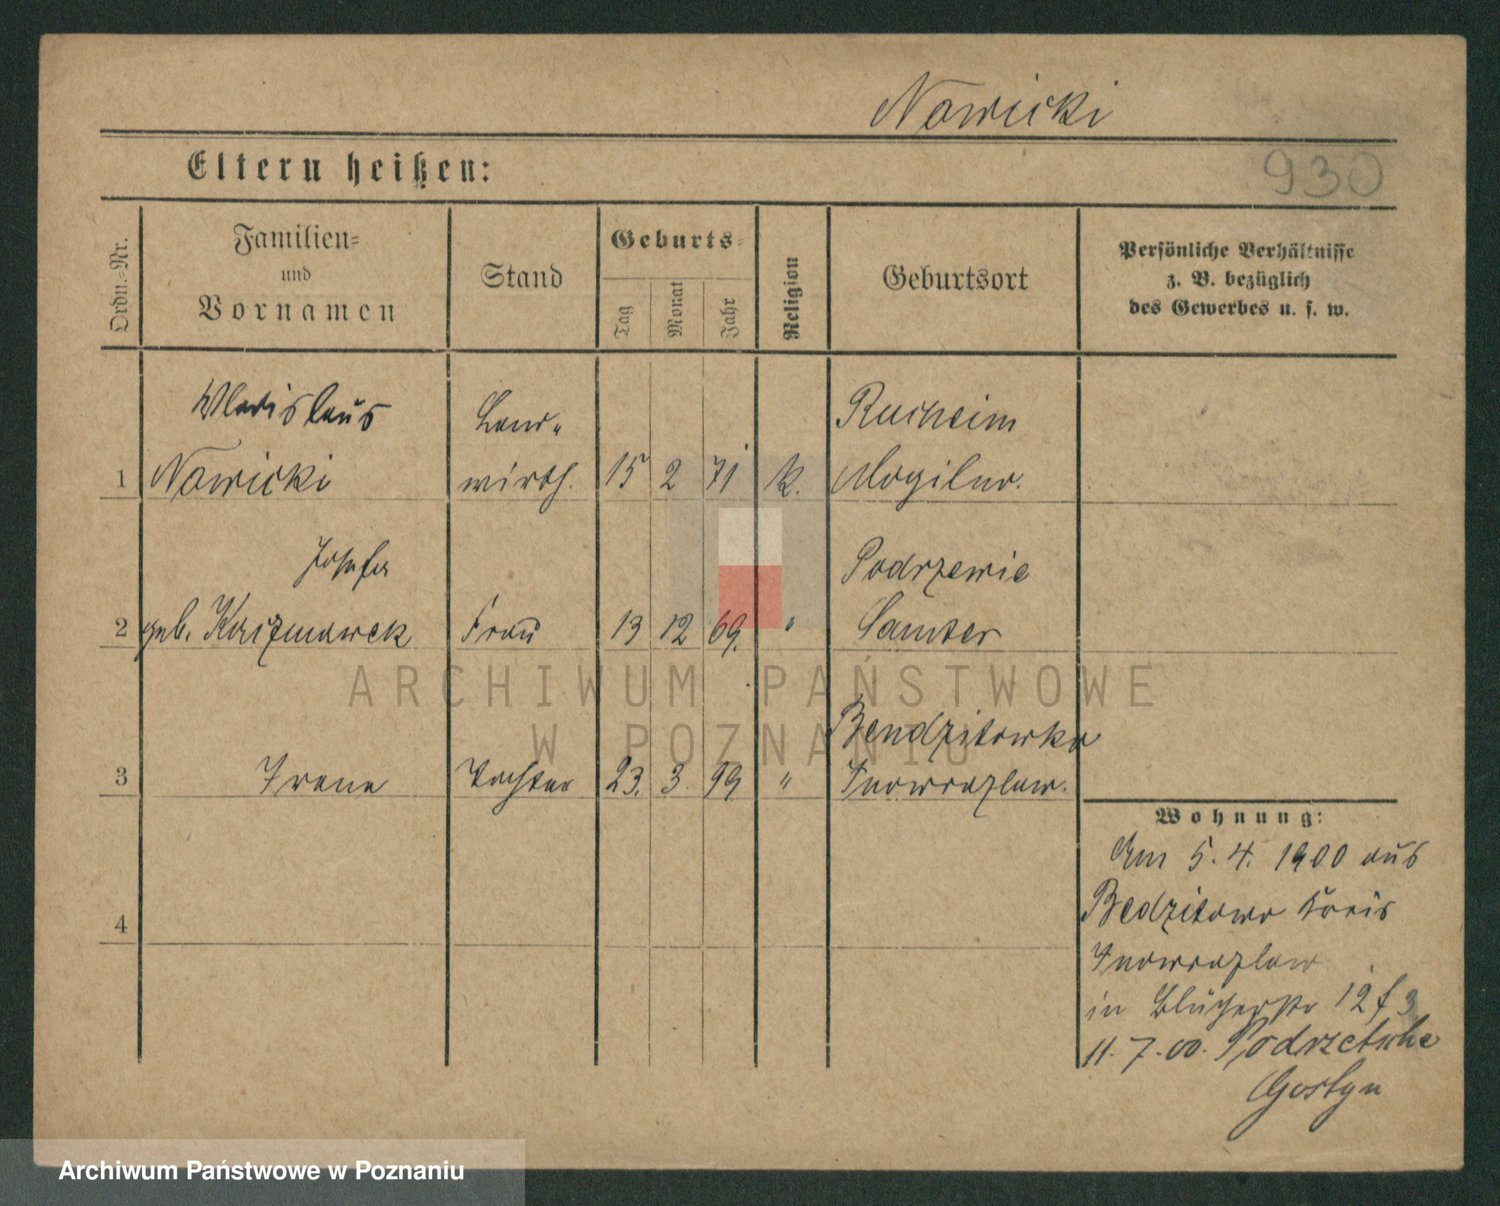 Nowicki
930
Eltern heißen:
Ordn.-Nr.
Familien-
und
Vornamen
Stand
Geburts-
Tag
Monat
Jahr
Religion
Geburtsort
Persönliche Verhältnisse
z. B. bezüglich
des Gewerbes u. s. w.
Wladislaus
Land-
Rucheim
1 Nowicki wirth. 15 2 71 k. Mogilno.
Josefa
Podrzewie
2 geb. Kaczmarek Frau 13 12 69. " Samter
ARCHIWUM PAŃSTWOWE
W POZNANIU
Bendzitowko
3 Irene Tochter 23. 3. 99 " Inowrazlaw.
Wohnung:
Am 5. 4. 1900 aus
4
Bedzitowo Kreis
Inowrazlaw
in Blücherstr 12
11. 7. 00.
Gostyn
Archiwum Państwowe w Poznaniu